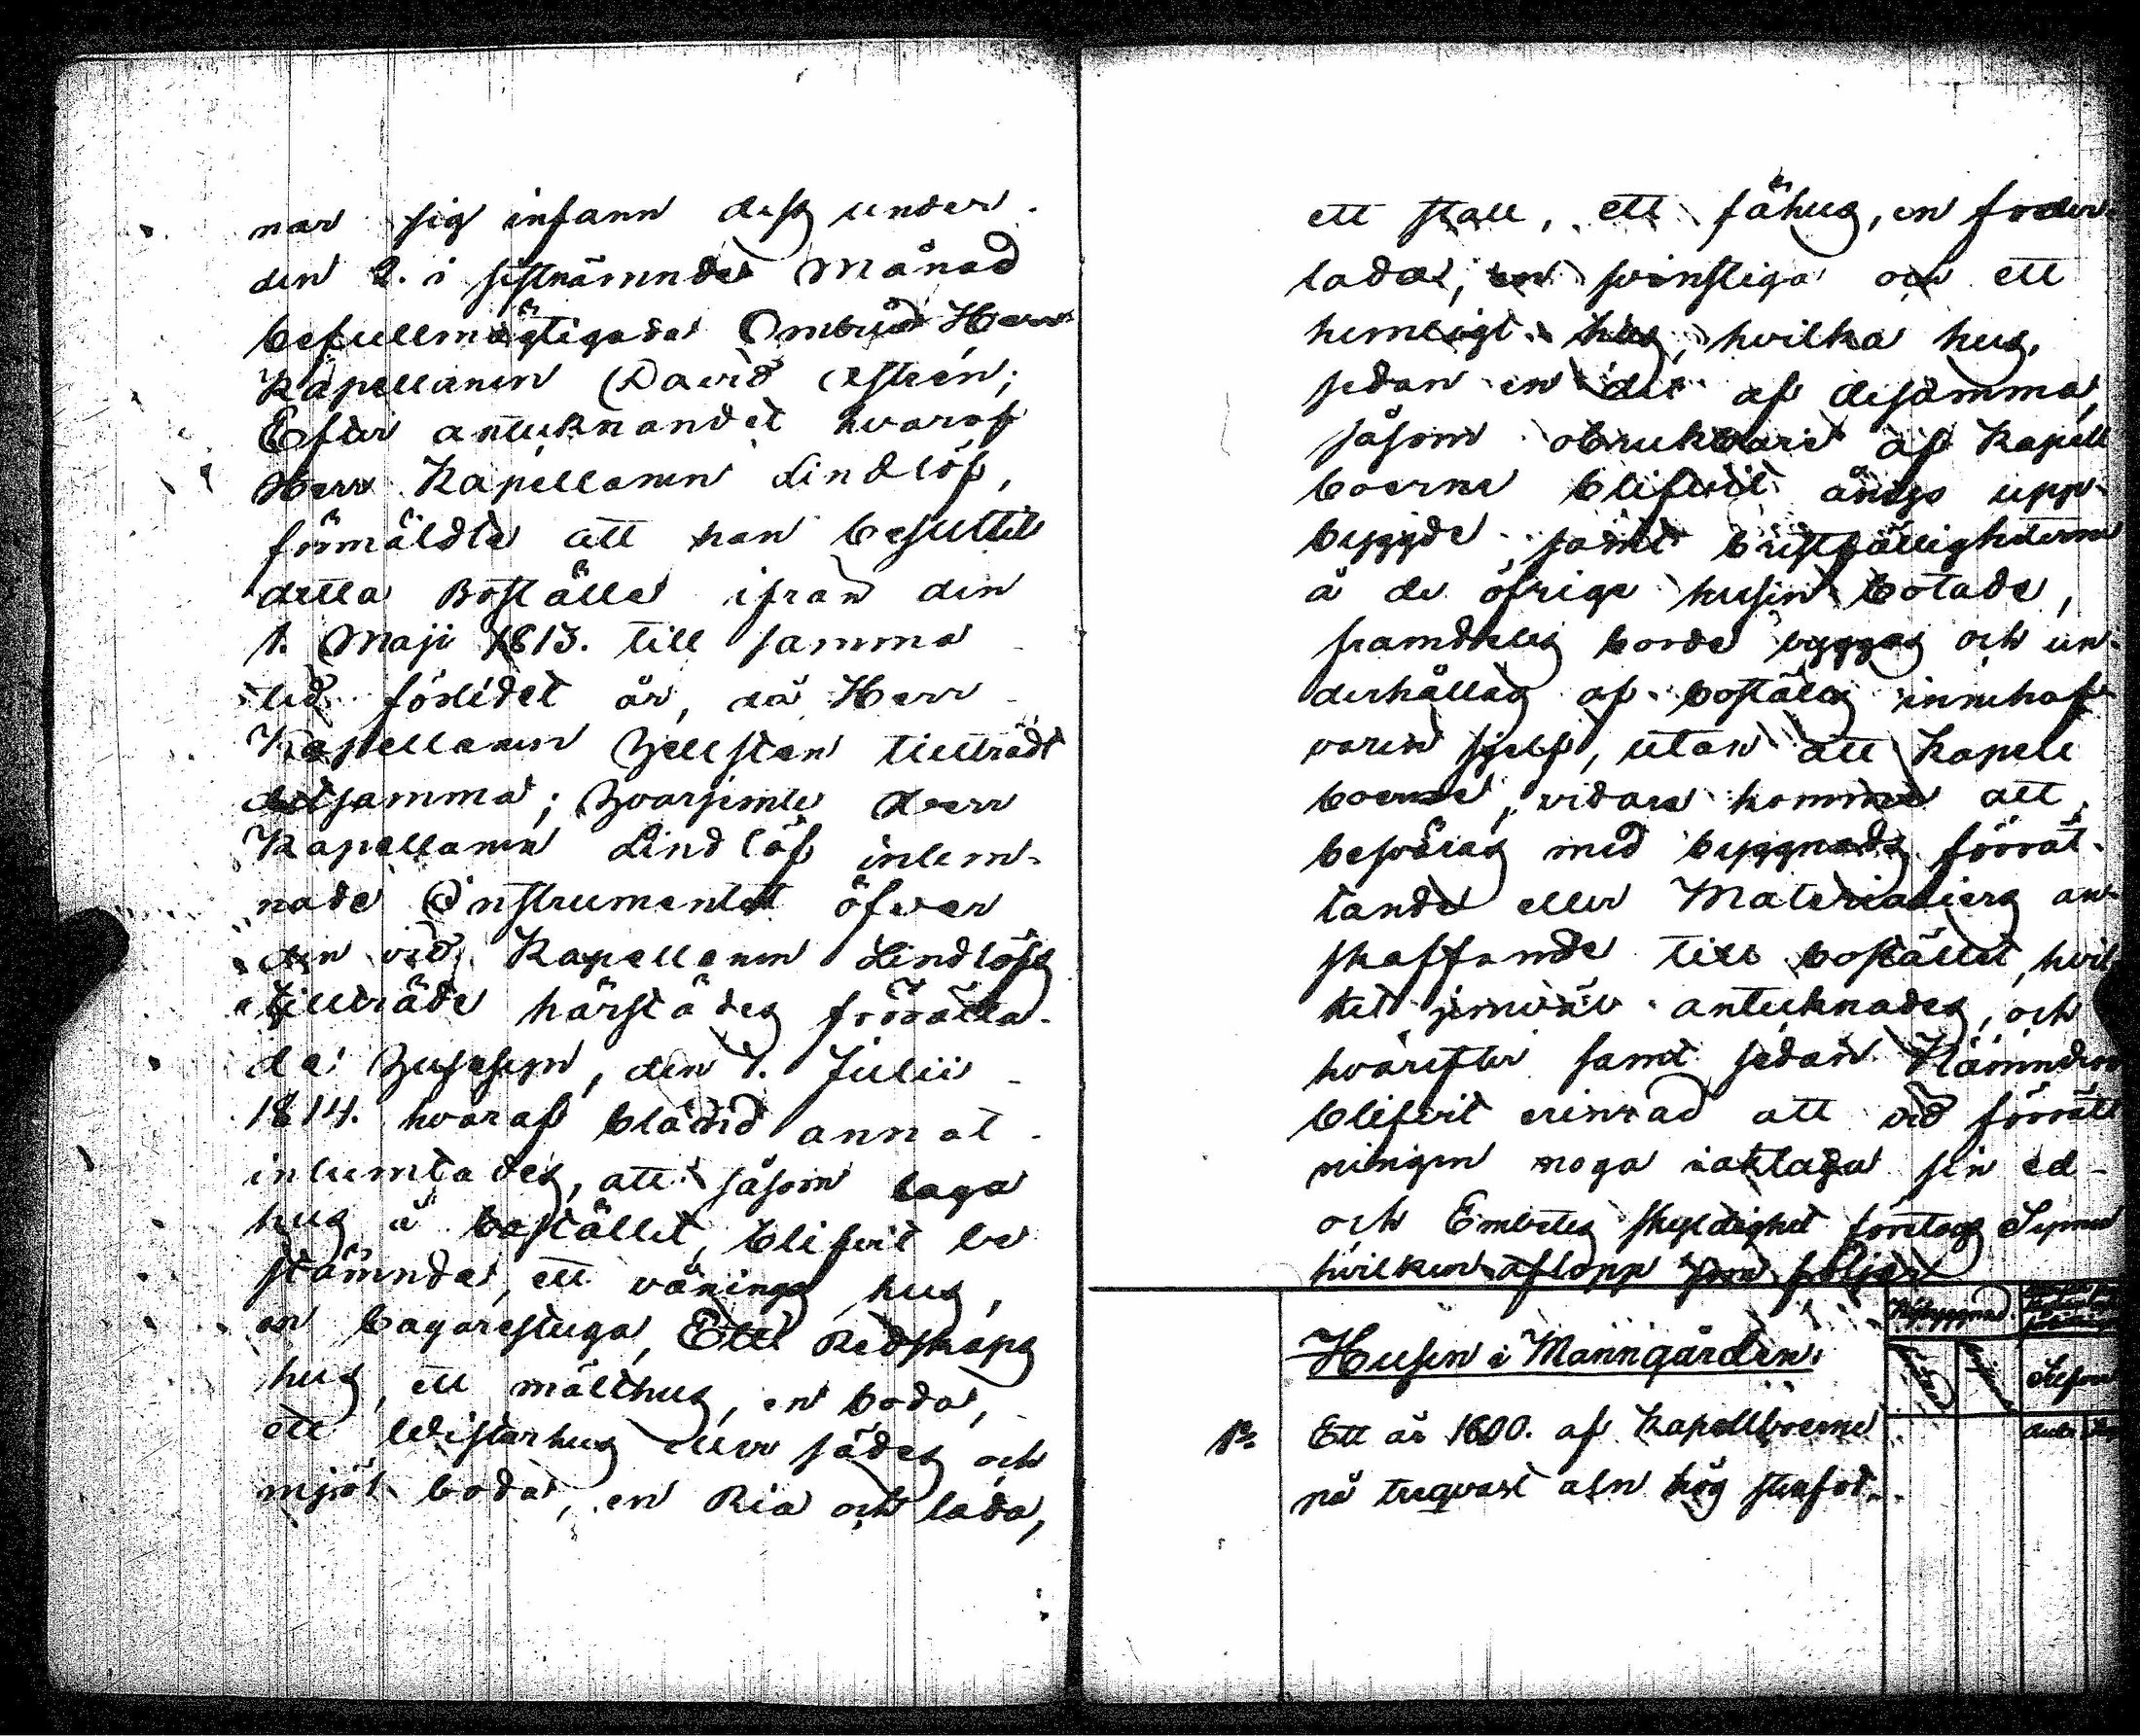 nar sig infann dess under
den 2. i sistnämnde Månad
befullmägtigade Ombud Herr
Kapellanen David
Efter antecknandet hvaraf
Herr Kapellanen Lindlöf,
förmäldte att han besuttit
detta Boställe ifrån den
1. Maji 1813. till samma
tid förlidet år, då Herr
Kapellanen Hellsten tillträdt
detsamma; Hvarjemte Herr
Kapellanen Lindlöf inlem-
nade Instrumentet öfver
den vid Kapellanen Lindlöfs
tillträde härstädes förrätta-
de Husesyn, den 1. Julii
1814. hvaraf bland annat
inhemtades, att såsom laga
hus å bostället blifvit be
stämnde, ett vånings hus,
en bagarestuga, Ett Redskaps
hus, ett mälthus, en boda,
ett Wistarhus eller sädes och
mjöl boda, en Ria och lada,
ett stall, ett fähus, en foder
lada, en svinstiga och ett
hemligt hus, hvilka hus,
sedan en del af desamma,
såsom obrukbare af Kapell
boerne blifvit ånyo upp-
byggde samt bristfälligheterne
å de öfriga husen botade,
framdeles borde byggas och un-
derhållas af boställs innehaf
varen sjelf, utan att Kapell
boerne, vidare komme att
besväras med byggnads förrät-
tande eller Materialiers an-
skaffande till bostället, hvil
ket jemväl antecknades, och
hvarefter samt sedan Nämnden
blifvit erinrad att vid förrätt
ningen noga iakttaga sin ed
och Embetes skyldighet företogs Synen
hvilken aflopp som följer
Husen i Manngården.
1o Ett år 1800. af Kapellboerne
på tuqvast aln hög stenfot